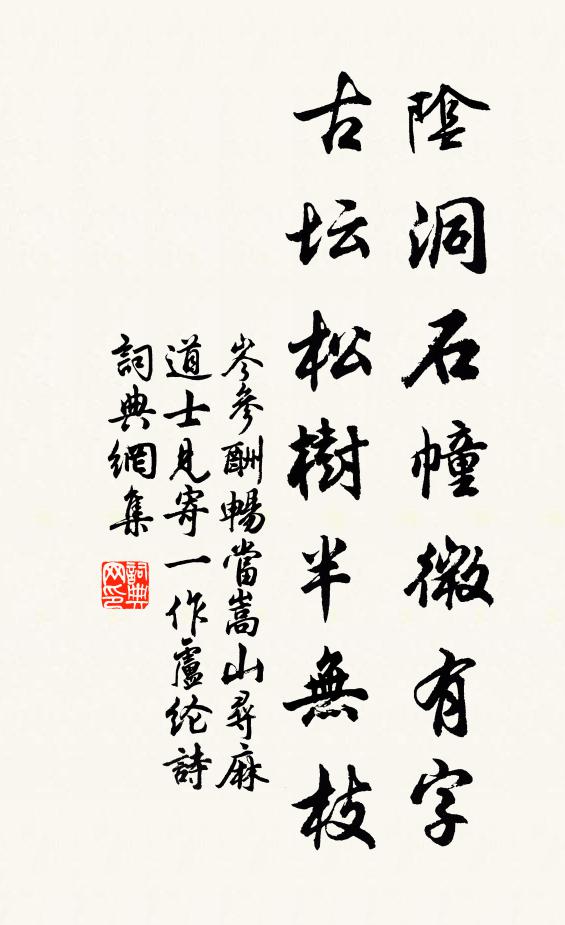 陰洞石幢微有字
古坛松樹半無枝
岑參酬暢當嵩山尋麻
道士見寄一作盧纶詩
詞典網集
詞典
网印